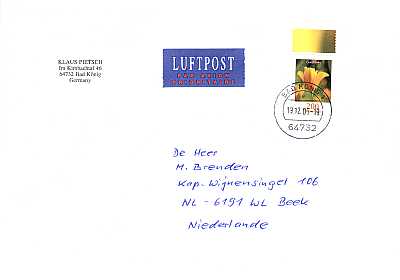 KLAUS PIETSCH
Im Kimbachtal 46
64732 Bad König
Germany
LUFTPOST
PAR AVION
PRIORITAIRE
BAD KÖNIG
19.12.05-18
64732
De Heer
M. Brenden
Kap. Wijnensingel 106
NL - 6191 WL Beek
Niederlande